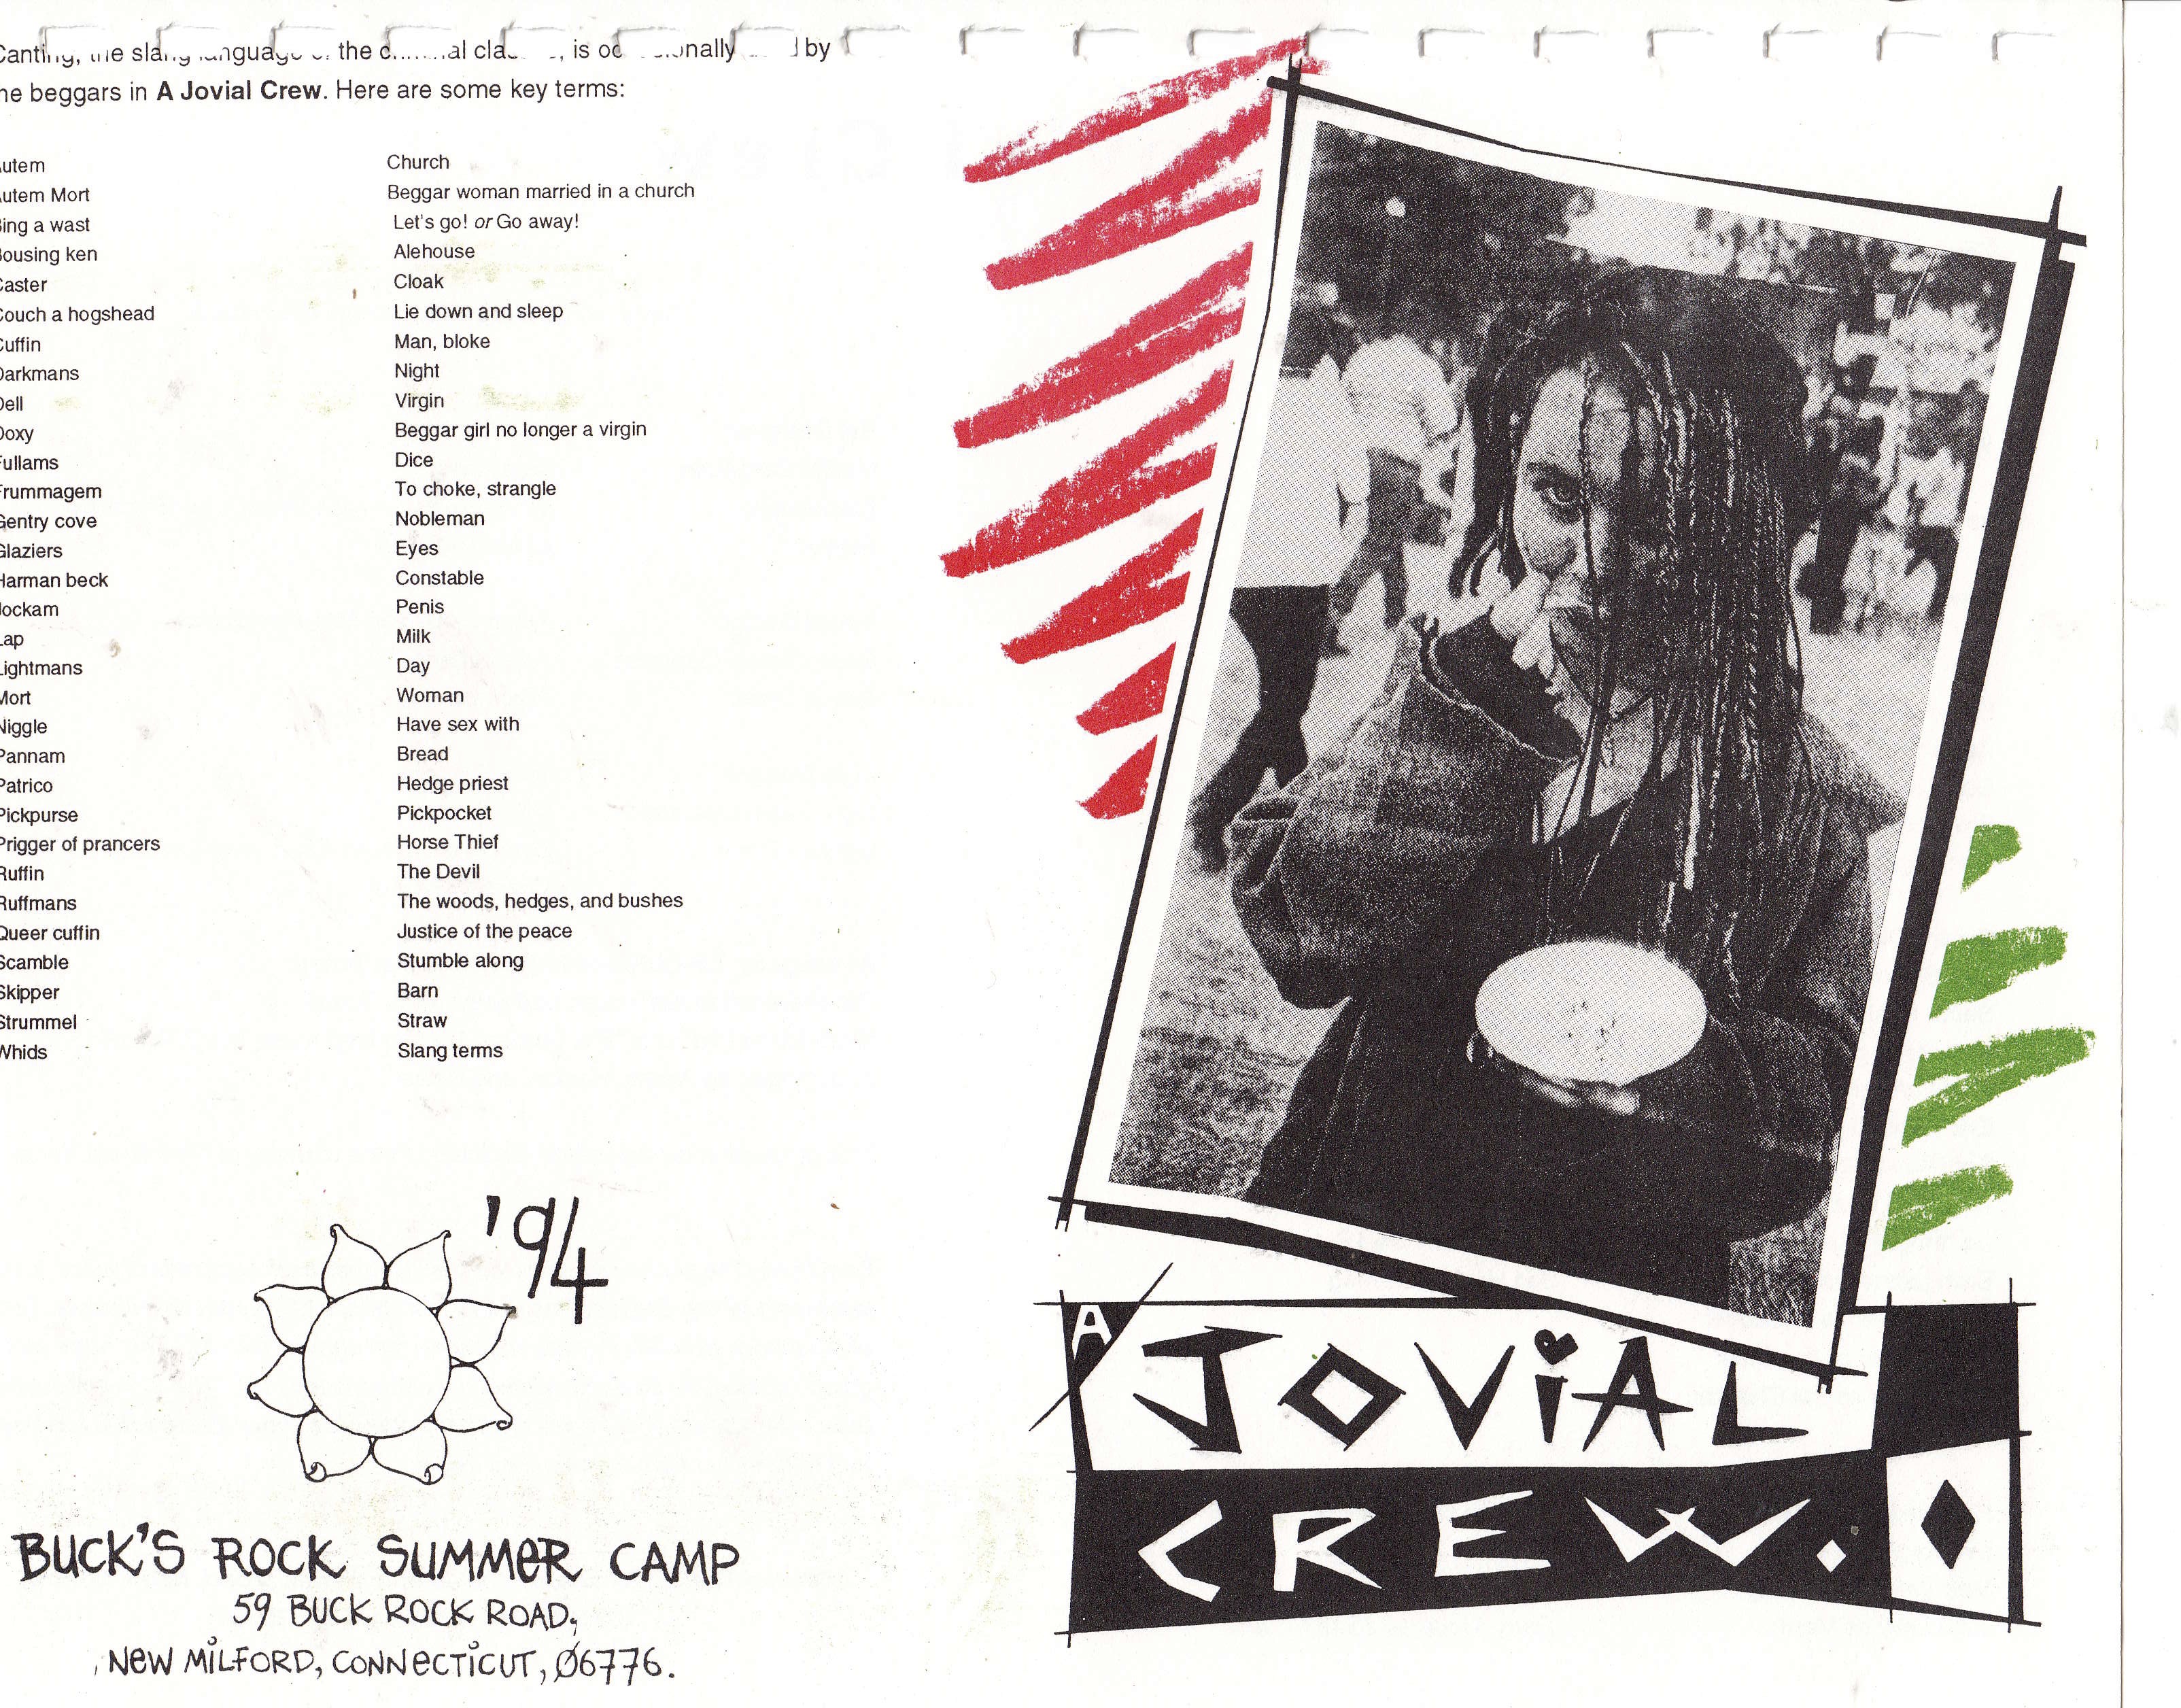 Canting, the slang language of the criminal classes, is occasionally used by
he beggars in A Jovial Crew. Here are some key terms:
utem Church
utem Mort Beggar woman married in a church
ing a wast Let's go! or Go away!
ousing ken Alehouse
Caster Cloak
Couch a hogshead Lie down and sleep
Cuffin Man, bloke
Darkmans Night
Dell Virgin
Doxy Beggar girl no longer a virgin
Fullams Dice
Frummagem To choke, strangle
Gentry cove Nobleman
Glaziers Eyes
Harman beck Constable
Jockam Penis
Lap Milk
Lightmans Day
Mort Woman
Niggle Have sex with
Pannam Bread
Patrico Hedge priest
Pickpurse Pickpocket
Prigger of prancers Horse Thief
Ruffin The Devil
Ruffmans The woods, hedges, and bushes
Queer cuffin Justice of the peace
Scamble Stumble along
Skipper Barn
Strummel Straw
Whids Slang terms
'94
BUCK'S ROCK SUMMeR CAMP
59 BUCK ROCK ROAD,
NeW MiLFORD, CONNecTiCUT, 06776.
A
JOViAL
CREW.